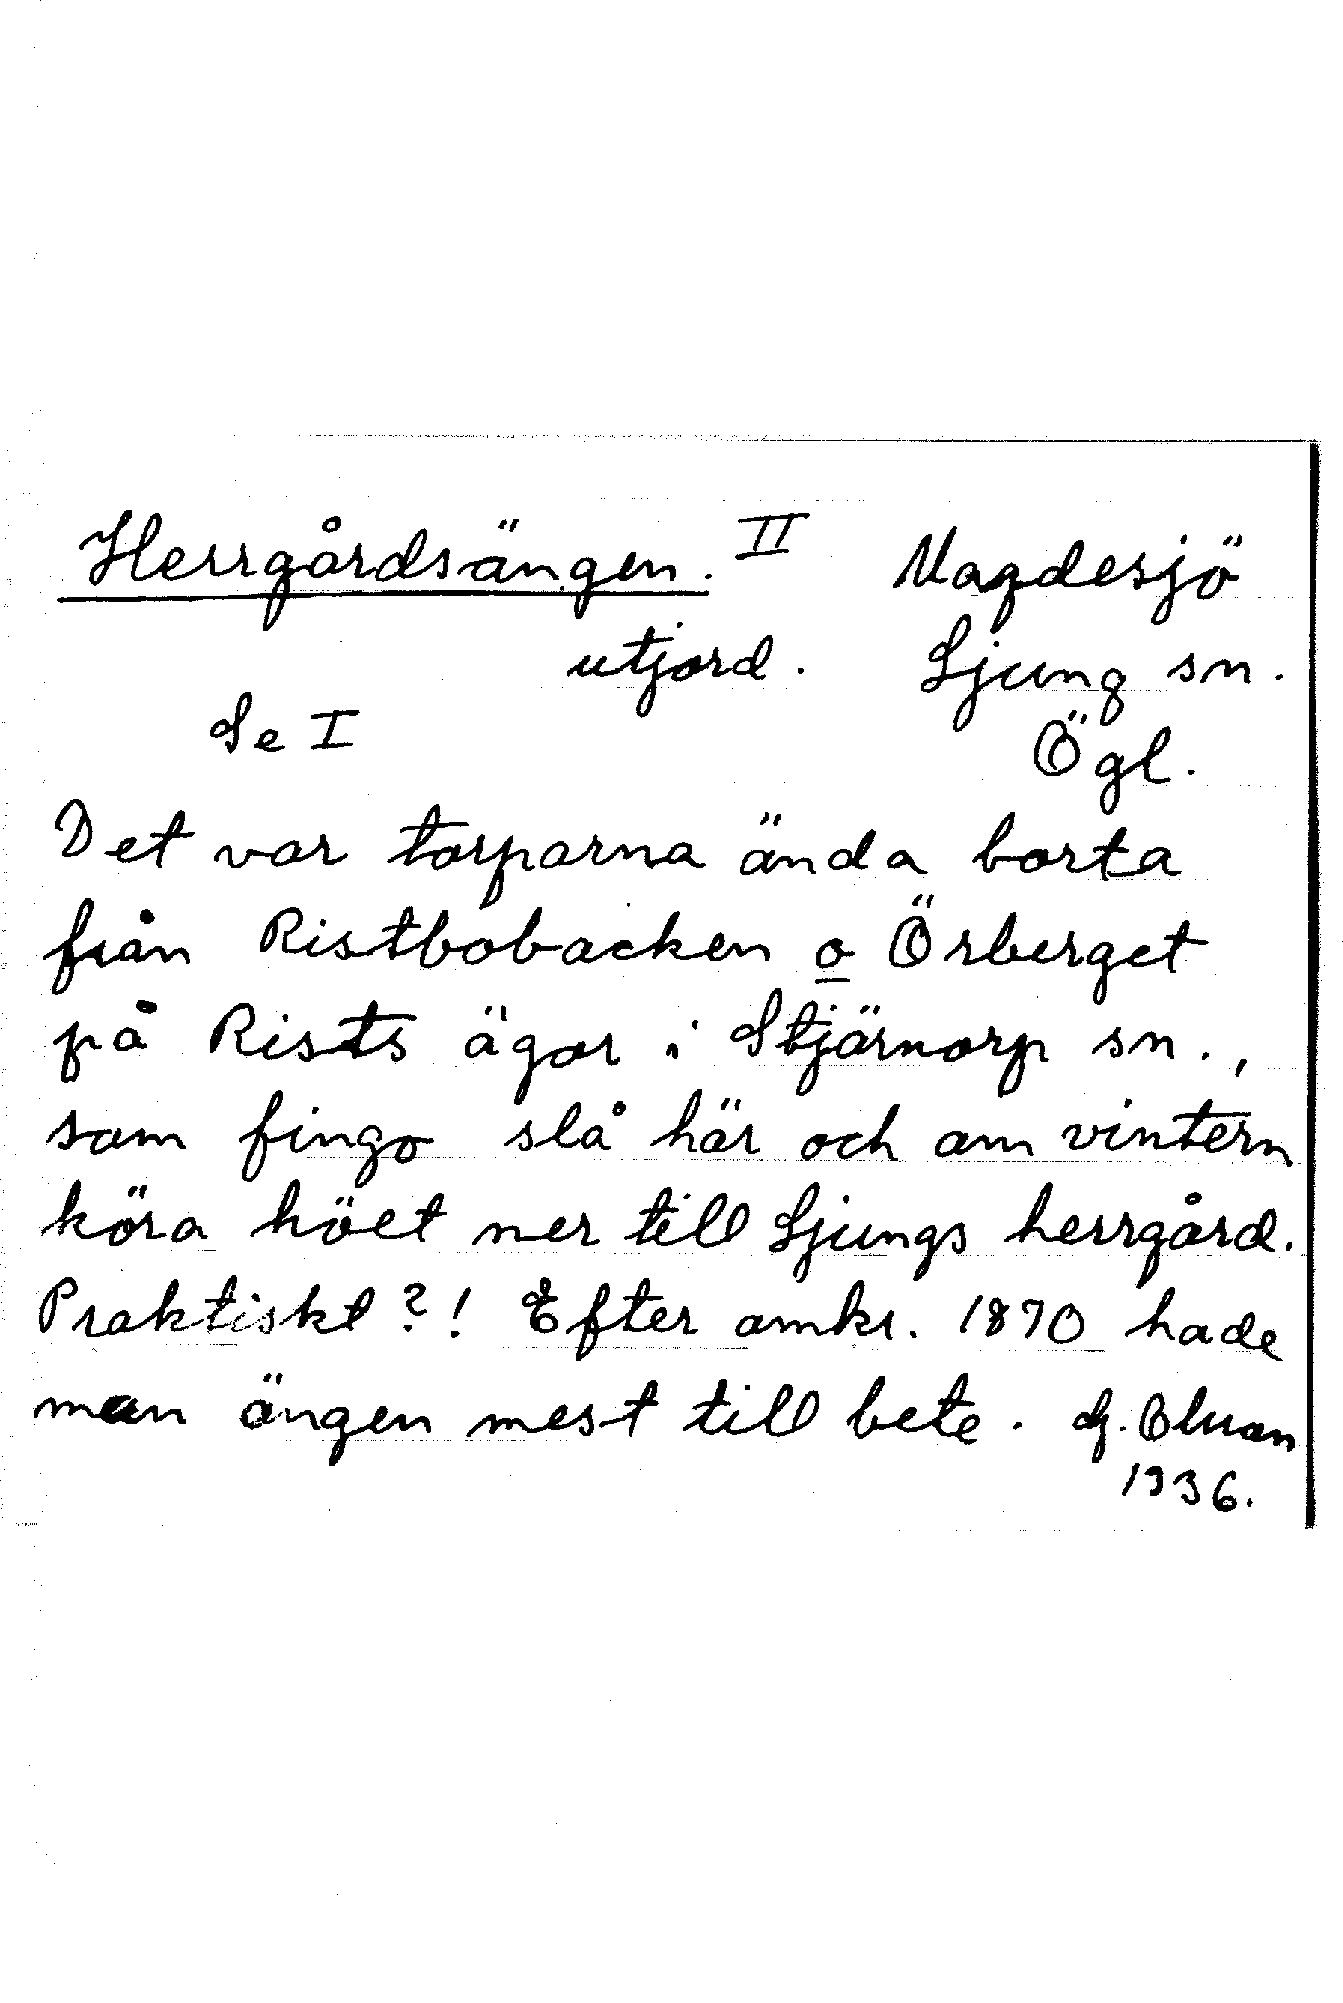 Herrgårdsängen. II Magdesjö
utjord. Ljung sn.
Se I Ögl.
Det var torparna ända borta
från Ristbobacken o Örberget
på Rists ägor i Stjärnorp sn.,
som fingo slå här och om vintern
köra höet ner till Ljungs herrgård.
Praktiskt?! Efter omkr. 1870 hade
man ängen mest till bete.
1936.